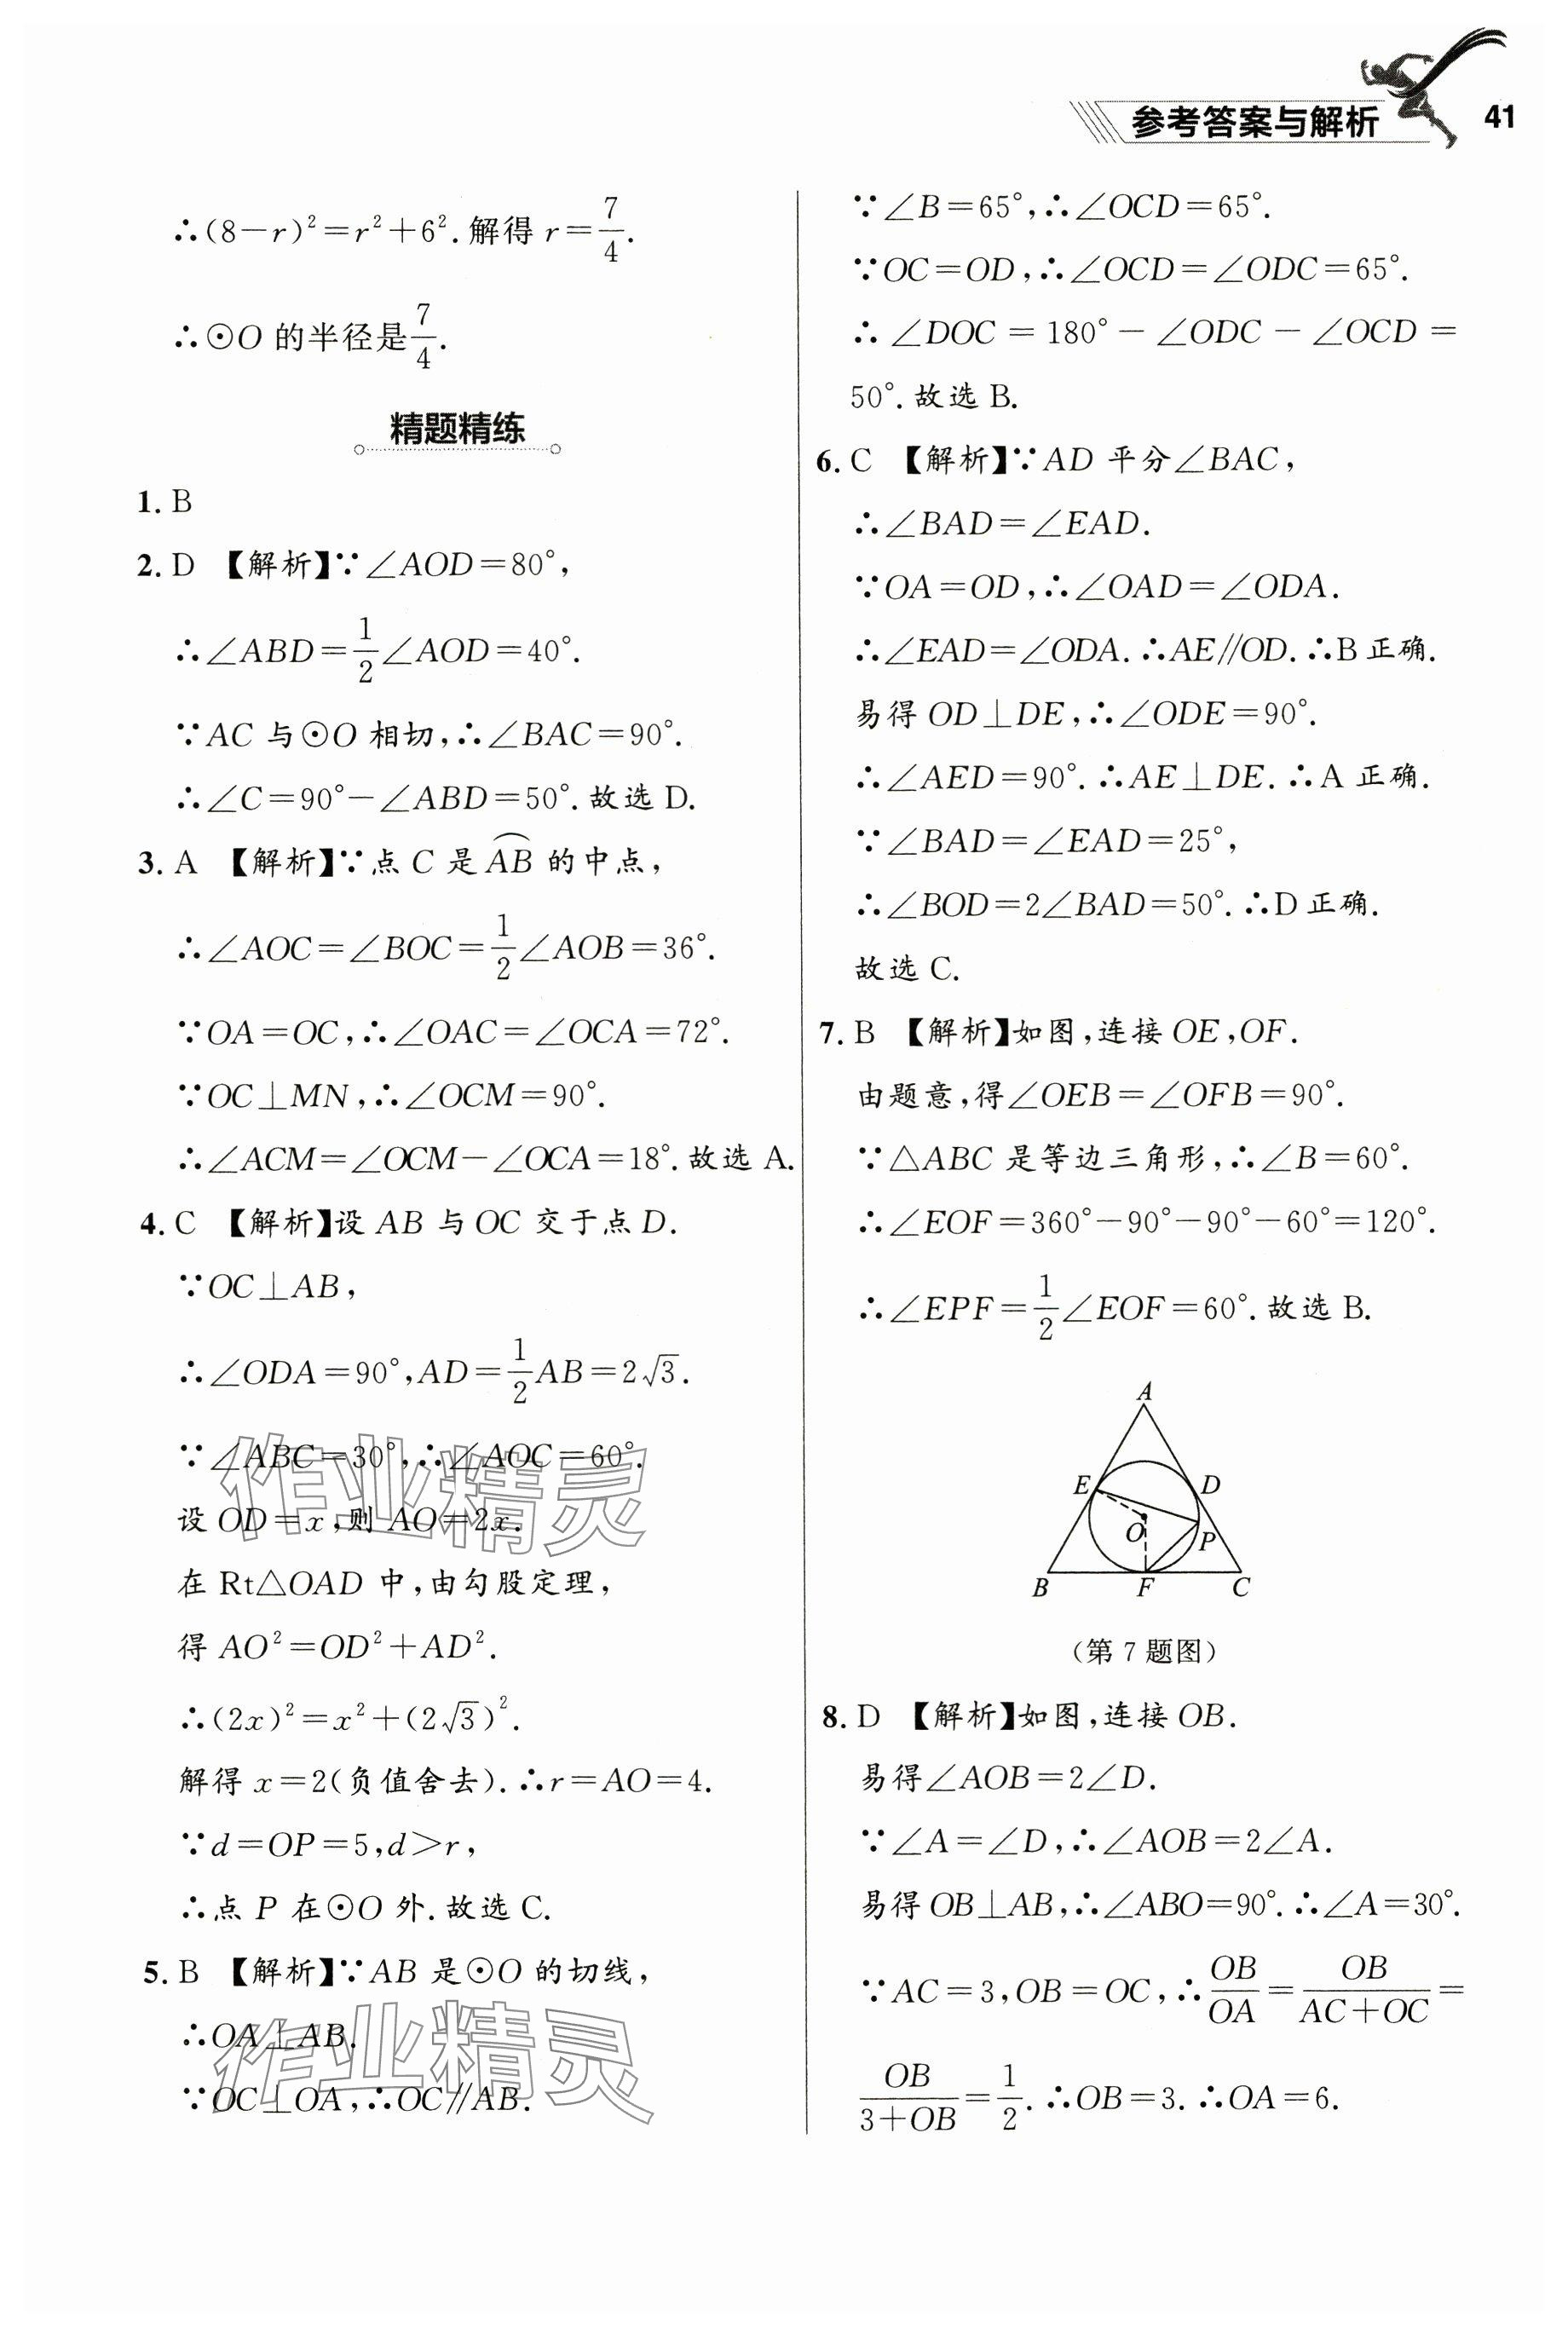 参考答案与解析 41
∴(8-r)²=r²+6².解得 r=7/4.
∴⊙O 的半径是7/4.
精题精练
1. B
2. D 【解析】∵∠AOD=80°,
∴∠ABD=1/2∠AOD=40°.
∵AC 与⊙O 相切,∴∠BAC=90°.
∴∠C=90°-∠ABD=50°.故选 D.
3. A 【解析】∵点 C 是 A͡B 的中点,
∴∠AOC=∠BOC=1/2∠AOB=36°.
∵OA=OC,∴∠OAC=∠OCA=72°.
∵OC⊥MN,∴∠OCM=90°.
∴∠ACM=∠OCM-∠OCA=18°.故选 A.
4. C 【解析】设 AB 与 OC 交于点 D.
∵OC⊥AB,
∴∠ODA=90°,AD=1/2AB=2√3.
∵∠ABC=30°,∴∠AOC=60°.
设 OD=x,则 AO=2x.
在 Rt△OAD 中,由勾股定理,
得 AO²=OD²+AD².
∴(2x)²=x²+(2√3)².
解得 x=2(负值舍去).∴r=AO=4.
∵d=OP=5,d>r,
∴点 P 在⊙O 外.故选 C.
5. B 【解析】∵AB 是⊙O 的切线,
∴OA⊥AB.
∵OC⊥OA,∴OC∥AB.
作业精灵
作业精灵
∵∠B=65°,∴∠OCD=65°.
∵OC=OD,∴∠OCD=∠ODC=65°.
∴∠DOC=180°-∠ODC-∠OCD=
50°.故选 B.
6. C 【解析】∵AD 平分∠BAC,
∴∠BAD=∠EAD.
∵OA=OD,∴∠OAD=∠ODA.
∴∠EAD=∠ODA.∴AE∥OD.∴B 正确.
易得 OD⊥DE,∴∠ODE=90°.
∴∠AED=90°.∴AE⊥DE.∴A 正确.
∵∠BAD=∠EAD=25°,
∴∠BOD=2∠BAD=50°.∴D 正确.
故选 C.
7. B 【解析】如图,连接 OE,OF.
由题意,得∠OEB=∠OFB=90°.
∵△ABC 是等边三角形,∴∠B=60°.
∴∠EOF=360°-90°-90°-60°=120°.
∴∠EPF=1/2∠EOF=60°.故选 B.
A
E D
O P
B F C
(第 7 题图)
8. D 【解析】如图,连接 OB.
易得∠AOB=2∠D.
∵∠A=∠D,∴∠AOB=2∠A.
易得 OB⊥AB,∴∠ABO=90°.∴∠A=30°.
∵AC=3,OB=OC,∴OB/OA=OB/(AC+OC)=
OB/(3+OB)=1/2.∴OB=3.∴OA=6.